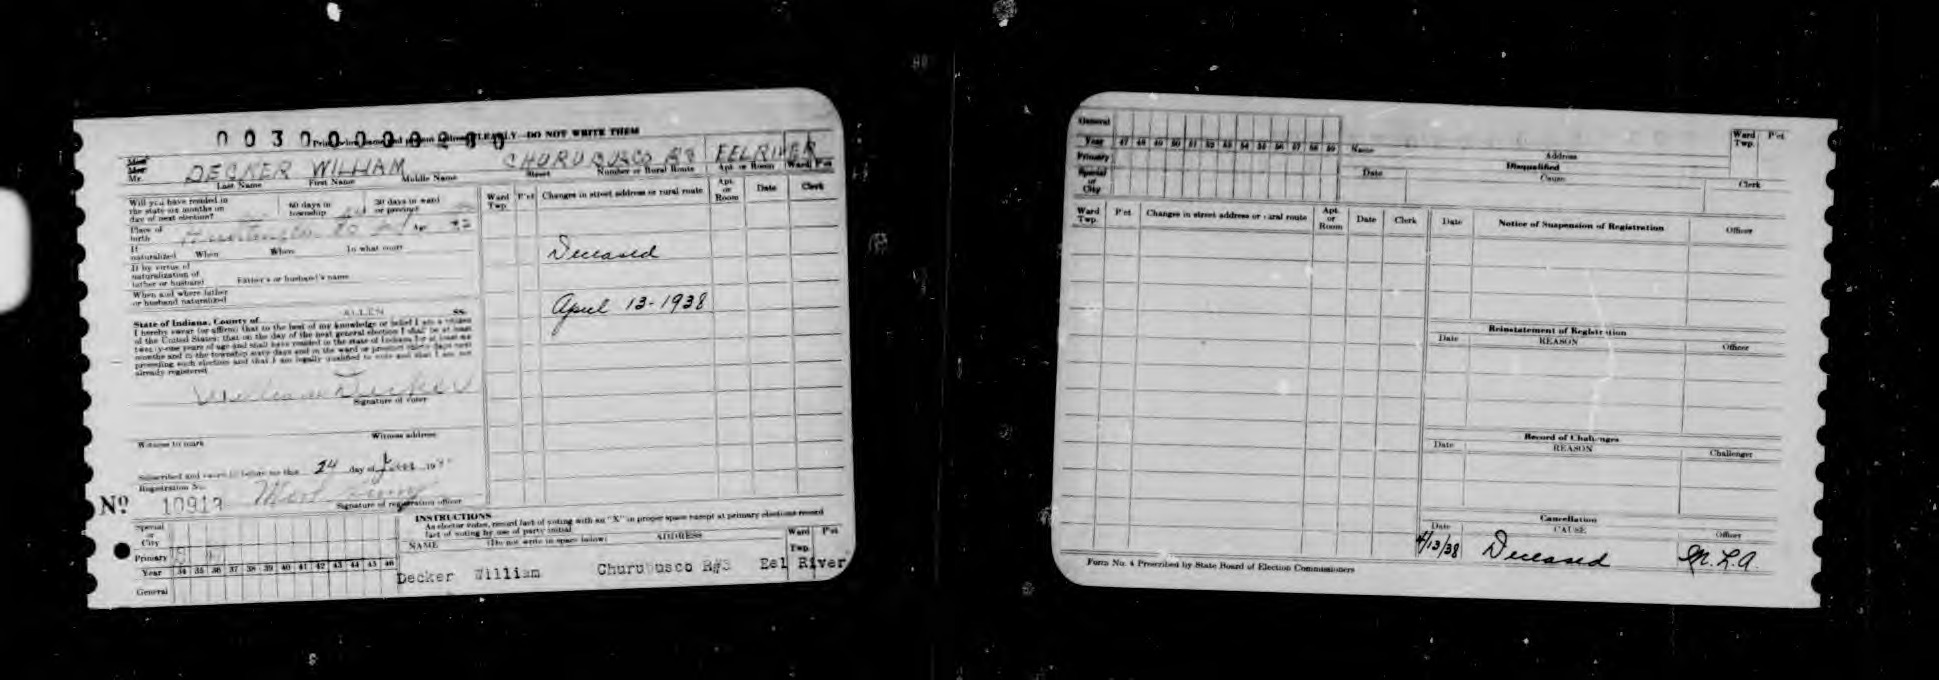 0 0 3 0 0 0 0 0 2 0 0
PLEARLY—DO NOT WRITE THEM
DECKER WILLIAM CHURUBUSCO R3 EEL RIVER
Mr. Last Name First Name Middle Name Street Number or Rural Route Apt. or Room Ward P'ct
Will you have resided in the state six months on day of next election? 60 days in township 30 days in ward or precinct
Place of birth Age
If naturalized When Where In what court
If by virtue of naturalization of father or husband Father's or husband's name
When and where father or husband naturalized
State of Indiana, County of ALLEN ss.
I hereby swear (or affirm) that to the best of my knowledge or belief I am a citizen
of the United States; that on the day of the next general election I shall be at least
twenty-one years of age and shall have resided in the state of Indiana for at least six
months and in the township sixty days and in the ward or precinct thirty days next
preceding such election and that I am legally qualified to vote and that I am not
already registered.
William Decker
Signature of voter
Witness to mark Witness address
Subscribed and sworn to before me this 24 day of 19
Registration No.
No. 10913
Signature of registration officer
Ward Twp. P'ct Changes in street address or rural route Apt. or Room Date Clerk
Deceased
April 13-1938
INSTRUCTIONS
As elector votes, record fact of voting with an "X" in proper space except at primary elections record
fact of voting by use of party initial
NAME (Do not write in space below) ADDRESS Ward Twp. P'ct
Decker William Churubusco R#3 Eel River
Special or City
Primary
Year 34 35 36 37 38 39 40 41 42 43 44 45 46
General
General
Year 47 48 49 50 51 52 53 54 55 56 57 58 59
Primary
Special or City
Name Address Ward Twp. P'ct
Disqualified
Date Cause Clerk
Ward Twp. P'ct Changes in street address or rural route Apt. or Room Date Clerk
Date Notice of Suspension of Registration Officer
Reinstatement of Registration
Date REASON Officer
Record of Challenges
Date REASON Challenger
Cancellation
Date CAUSE Officer
4/13/38 Deceased M.L.A.
Form No. 4 Prescribed by State Board of Election Commissioners